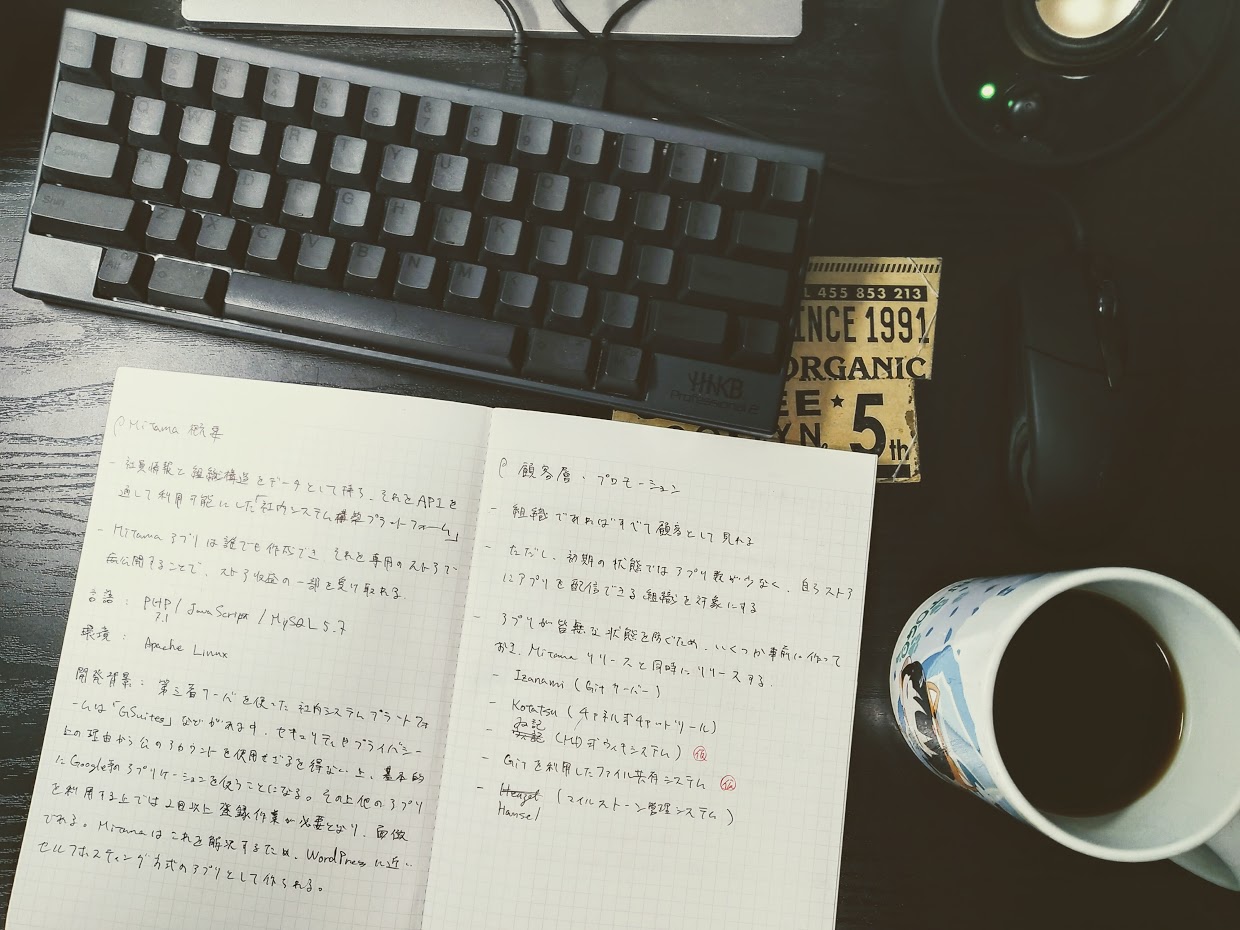 Esc 1 2 3 4 5 6 7 8 9 0
Q W E R T Y U I O
A S D F G H J K L
Shift Z X C V B N M
Alt
HHKB
Professional2
L 455 853 213
INCE 1991
ORGANIC
EE ★ 5th
YN
Mitama 概要
- 社員情報と組織構造をデータとして持ち、それをAPIを
通して利用可能にした「社内システム構築プラットフォーム」
- Mitamaアプリは誰でも作成でき、それを専用のストアで
公開することで、ストア収益の一部を受け取れる
言語: PHP / JavaScript / MySQL 5.7
7.1
環境: Apache Linux
開発背景: 第三者サーバを使った社内システムプラットフォ
ームは「GSuites」などがあります。セキュリティやプライバシー
上の理由から公のアカウントを使用せざるを得ない上、基本的
にGoogle系アプリケーションを使うことになる。その上他のアプリ
を利用する上では2回以上登録作業が必要となり、面倒
である。Mitamaはこれを解決するため、WordPressに近い
セルフホスティング方式のアプリとして作られる。
顧客層・プロモーション
- 組織であればすべて顧客として見れる
- ただし、初期の状態ではアプリ数が少なく、自らストア
にアプリを配信できる組織を対象にする
- アプリが皆無な状態を防ぐため、いくつか事前に作って
おき、Mitamaリリースと同時にリリースする。
- Izanami (Gitサーバー)
- Kotatsu (チャネル式チャットツール)
- (MD式ウィキシステム) 仮
- Gitを利用したファイル共有システム 仮
- Hansel (マイルストーン管理システム)